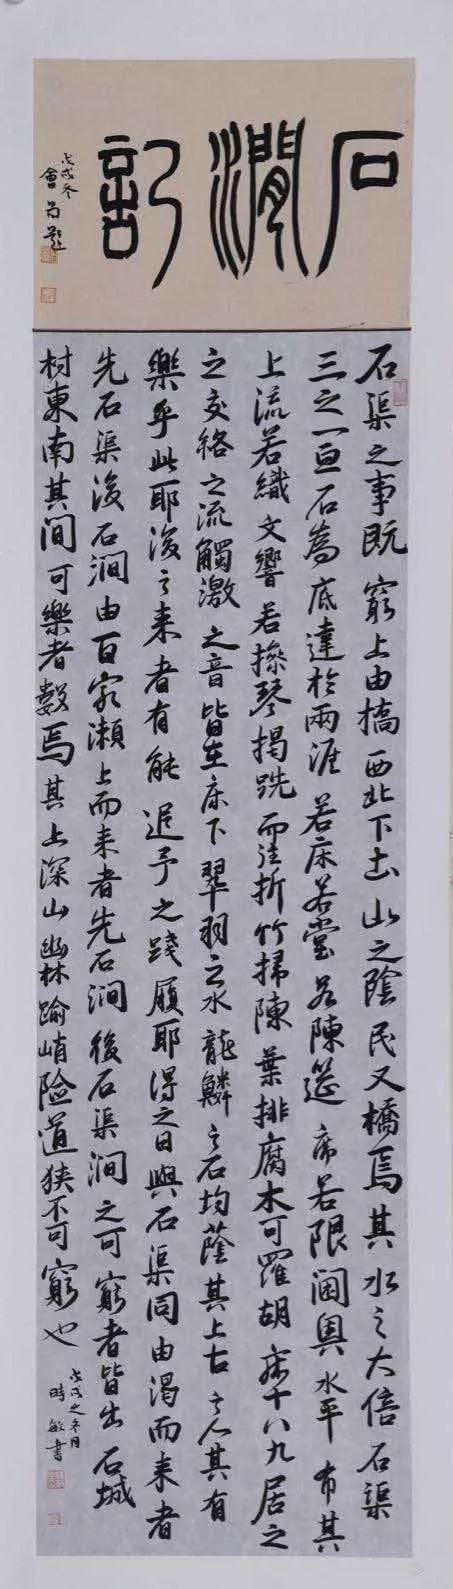 石澗記
戊戌冬
會題
石渠之事既窮上由橋西北下土山之陰民又橋焉其水之大倍石渠
三之一亘石為底達於兩涯若床若堂若陳筵席若限閫奧水平布其
上流若織文響若操琴揭跣而往折竹掃陳葉排腐木可羅胡床十八九居之
之交絡之流觸激之音皆在床下翠羽之水龍鱗之石均蔭其上古之人其有
樂乎此耶後之來者有能追予之踐履耶得之日與石渠同由渴而來者
先石渠後石澗由百家瀨上而來者先石澗後石渠澗之可窮者皆出石城
村東南其間可樂者數焉其上深山幽林踰峭險道狹不可窮也
戊戌之冬月
時敏書